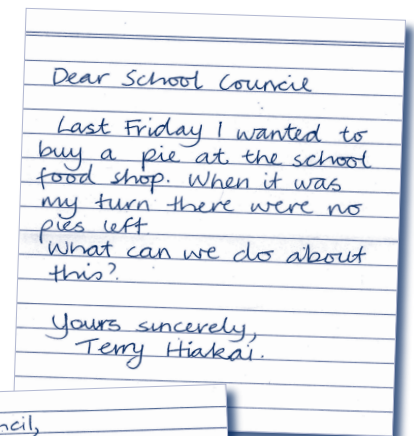 Dear School Council
Last Friday I wanted to
buy a pie at the school
food shop. When it was
my turn there were no
pies left
What can we do about
this?
Yours sincerely,
Terry Hiakai.
ncil,